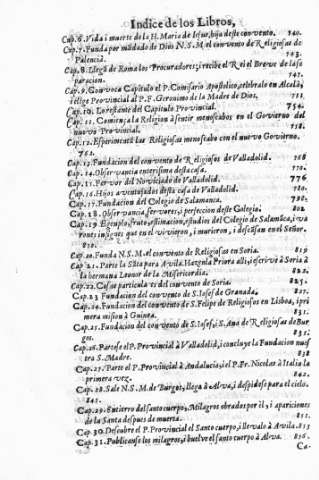 Indice de los Libros,
Cap. 6. Vida i muerte de la H. Maria de Jesus, hija deste convento. 740.
Cap. 7. Funda por mãdado de Dios N.S.M. el convento de Religiosas de
Palencia. 743.
Cap. 8. Llegã de Roma los Procuradores, i recibe el Rei el Breve de la se
paracion.
Cap. 9. Convoca Capitulo el P. Comisario Apostolico, celebralo en Alcalá,
i elige Provincial al P. F. Geronimo de la Madre de Dios.
Cap. 10. Lo restante del Capitulo Provincial. 754.
Cap. 11. Comiença la Religion à sentir menoscabos en el Govierno del
nuevo Provincial. 758.
Cap. 12. Esperimentã las Religiosas menoscabo con el nuevo Govierno.
762.
Cap. 13. Fundacion del convento de Religiosos de Valladolid. 768
Cap. 14. Observancia enterisima desta casa.
Cap. 15. Fervor del Noviciado de Valladolid. 776
Cap. 16. Hijos aventajados desta casa de Valladolid. 780.
Cap. 17. Fundacion del Colegio de Salamanca. 798.
Cap. 18. Observancia, fervores, i perfeccion deste Colegio. 802
Cap. 19. Egemplo, fruto, estimacion, estudios del Colegio de Salamãca, i va
rones insignes que en el vivieron, i murieron, i descãsan en el Señor.
810.
Cap. 20. Funda N.S.M. el convento de Religiosas en Soria. 819
Cap. 21. Parte la Sãta para Avila. Hazenla Priora alli, i escrive à Soria à
la hermana Leonor de la Misericordia. 822.
Cap. 22. Cosas particulares del convento de Soria. 825.
Cap. 23 Fundacion del convento de S. Josef de Granada. 827.
Cap. 24. Fundacion del convento de S. Felipe de Religiosos en Lisboa, i pri
mera mision à Guinea. 831.
Cap. 25. Fundacion del convento de S. Josef, i S. Ana de Religiosas de Bur
gos. 833.
Cap. 26. Parte se el P. Provincial à Valladolid, i concluye la Fundacion nues
tra S. Madre. 836.
Cap. 27. Parte el P. Provincial à Andalucia, i el P. Fr. Nicolas à Italia la
primera vez. 838.
Cap. 28. Sale N.S.M. de Burgos, llega à Alva, i despidese para el cielo.
842.
Cap. 29. Entierro del santo cuerpo, Milagros obrados por èl, i apariciones
de la Santa despues de muerta. 850.
Cap. 30. Descubre el P. Provincial el Santo cuerpo, i llevalo à Avila. 853
Cap. 31. Publicanse los milagros, i buelve el santo cuerpo à Alva. 856.
Ca-